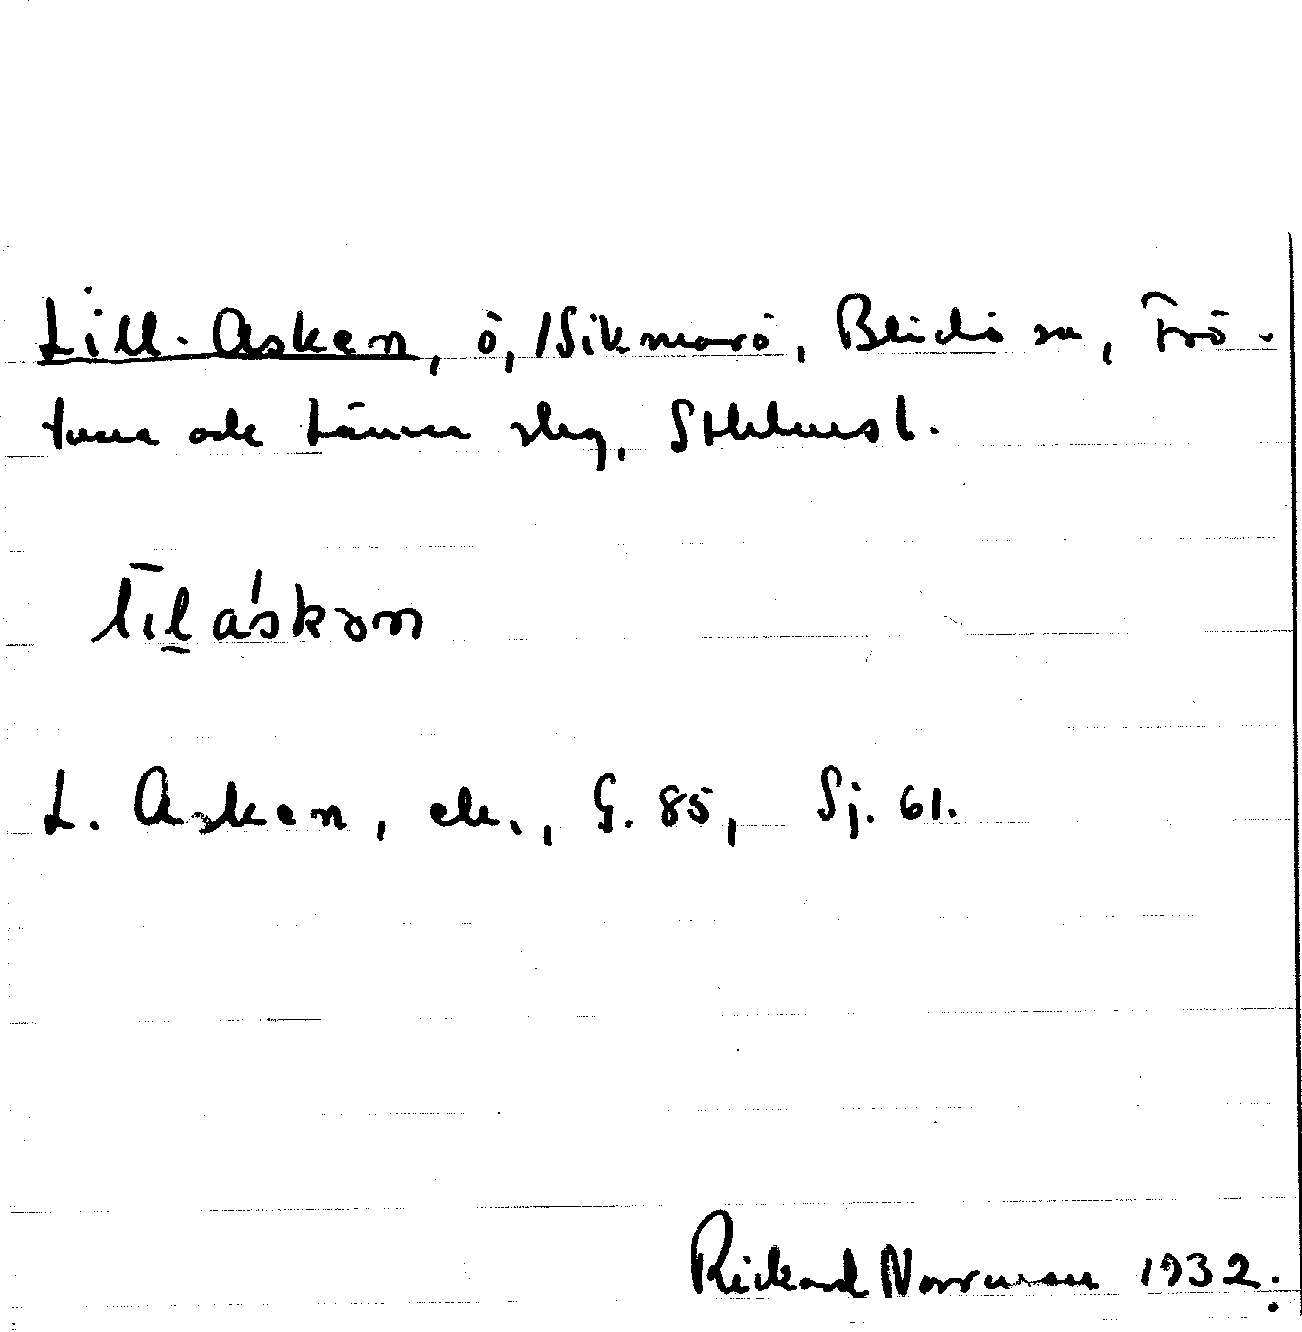 Lill-Asken, ö, /Sikmarö, Blidö sn, Frö-
tuna och Länna slg, Sthlms l.
lilaskon
L. Asken, ek., G. 85, Sj. 61.
Rickard Norrman 1932.